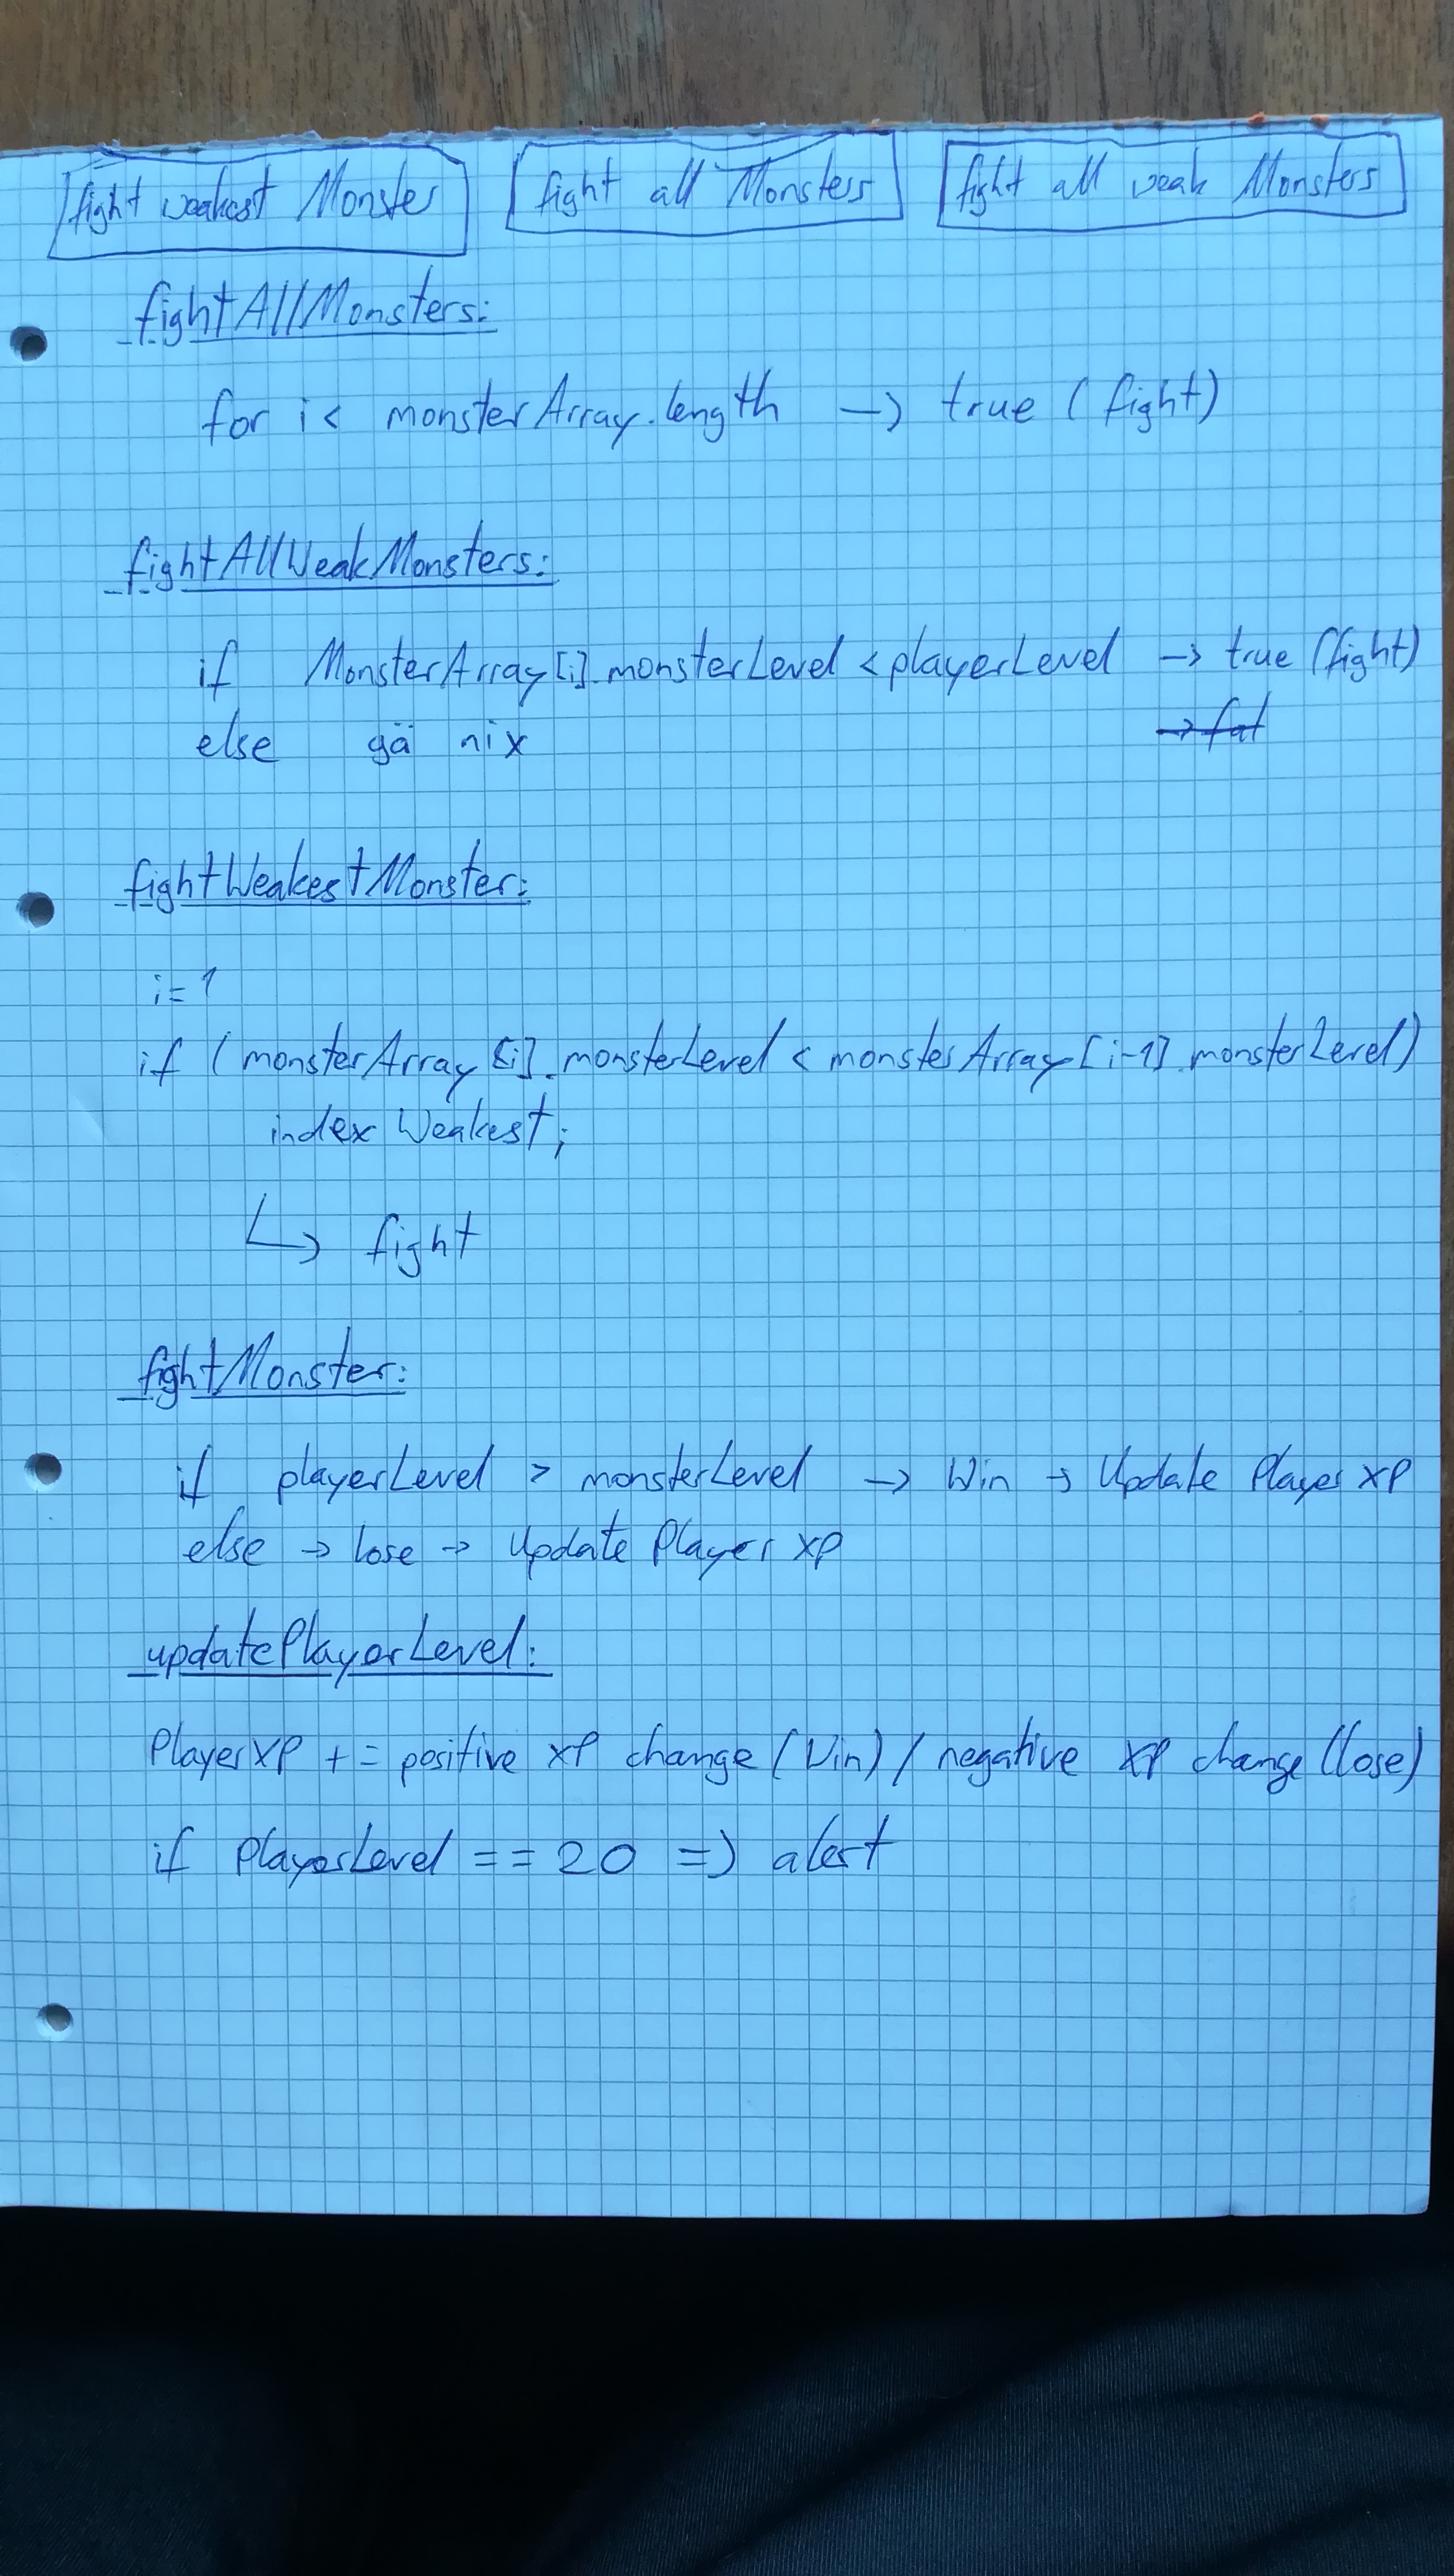 fight weakest Monster
fight all Monsters
fight all weak Monsters
fightAllMonsters:
for i < monsterArray.length → true (fight)
fightAllWeakMonsters:
if MonsterArray[i].monsterLevel < playerLevel → true (fight)
else gä nix
fightWeakestMonster:
i=1
if (monsterArray[i].monsterLevel < monsterArray[i-1].monsterLevel)
index Weakest;
↳ fight
fightMonster:
if playerLevel > monsterLevel → Win → Update Player XP
else → lose → Update Player XP
updatePlayerLevel:
PlayerXP += positive XP change (Win) / negative XP change (lose)
if PlayerLevel == 20 => alert